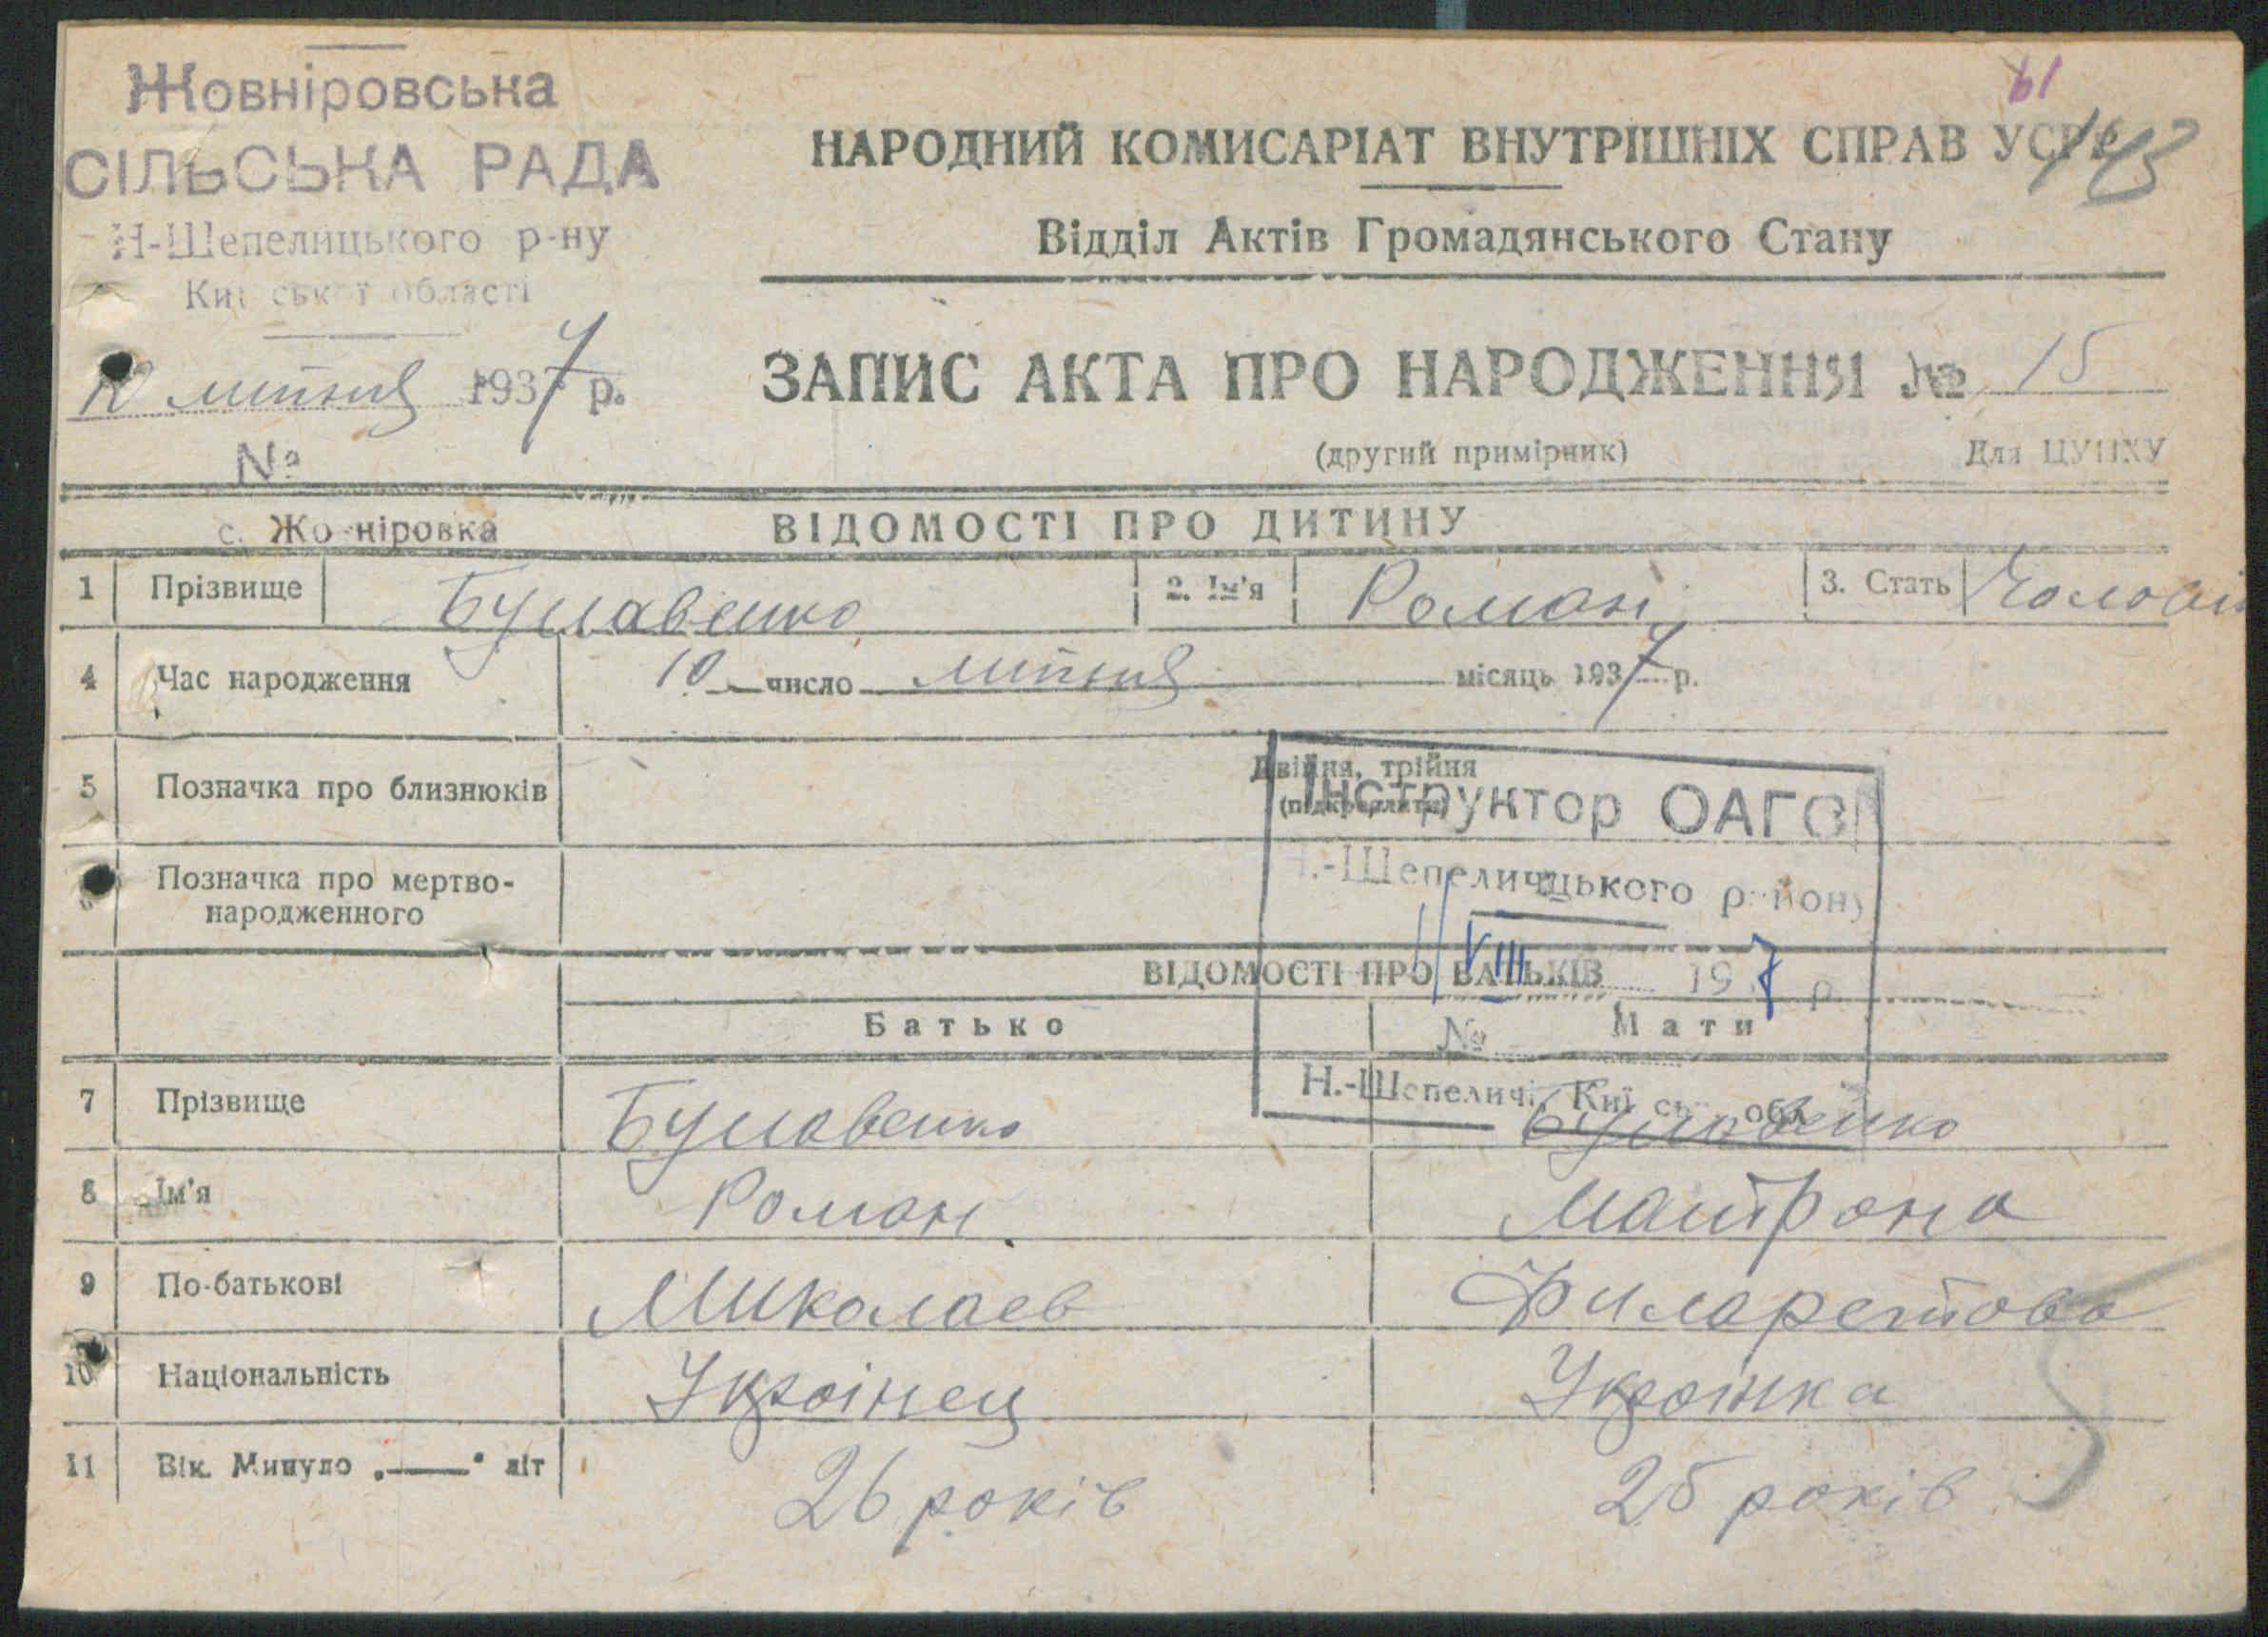 Жовніровська
СІЛЬСЬКА РАДА
Н-Шепелицького р-ну
Київської області
10 липня 1937 р.
№
61
143
НАРОДНИЙ КОМИСАРІАТ ВНУТРІШНІХ СПРАВ УСРР
Відділ Актів Громадянського Стану
ЗАПИС АКТА ПРО НАРОДЖЕННЯ № 15
(другий примірник) Для ЦУНХУ
с. Жовніровка ВІДОМОСТІ ПРО ДИТИНУ
1 Прізвище Булавенко 2. Ім'я Роман 3. Стать Чоловіч
4 Час народження 10 число липня місяць 1937 р.
5 Позначка про близнюків Двійня, трійня
(підкреслити)
Інструктор ОАГС
Н.-Шепеличцького району
Позначка про мертво-
народженного
11/VIII 1937 р.
ВІДОМОСТІ ПРО БАТЬКІВ
Батько Мати
№
Н.-Шепеличі, Київськ. обл.
7 Прізвище Булавенко Булавенко
8 Ім'я Роман Матрона
9 По-батькові Миколаев Филаретова
10 Національність Українец Українка
11 Вік. Минуло „—" літ 26 років 25 років